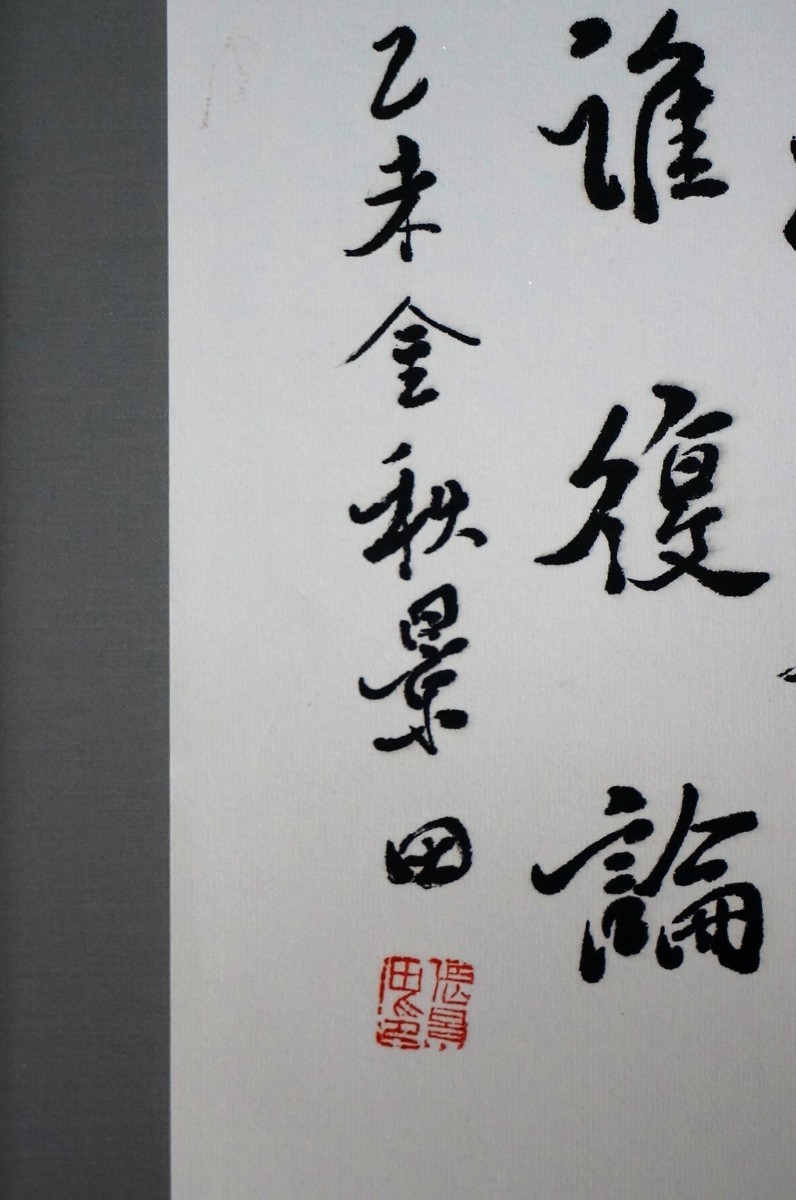 誰復論
乙未金秋景田